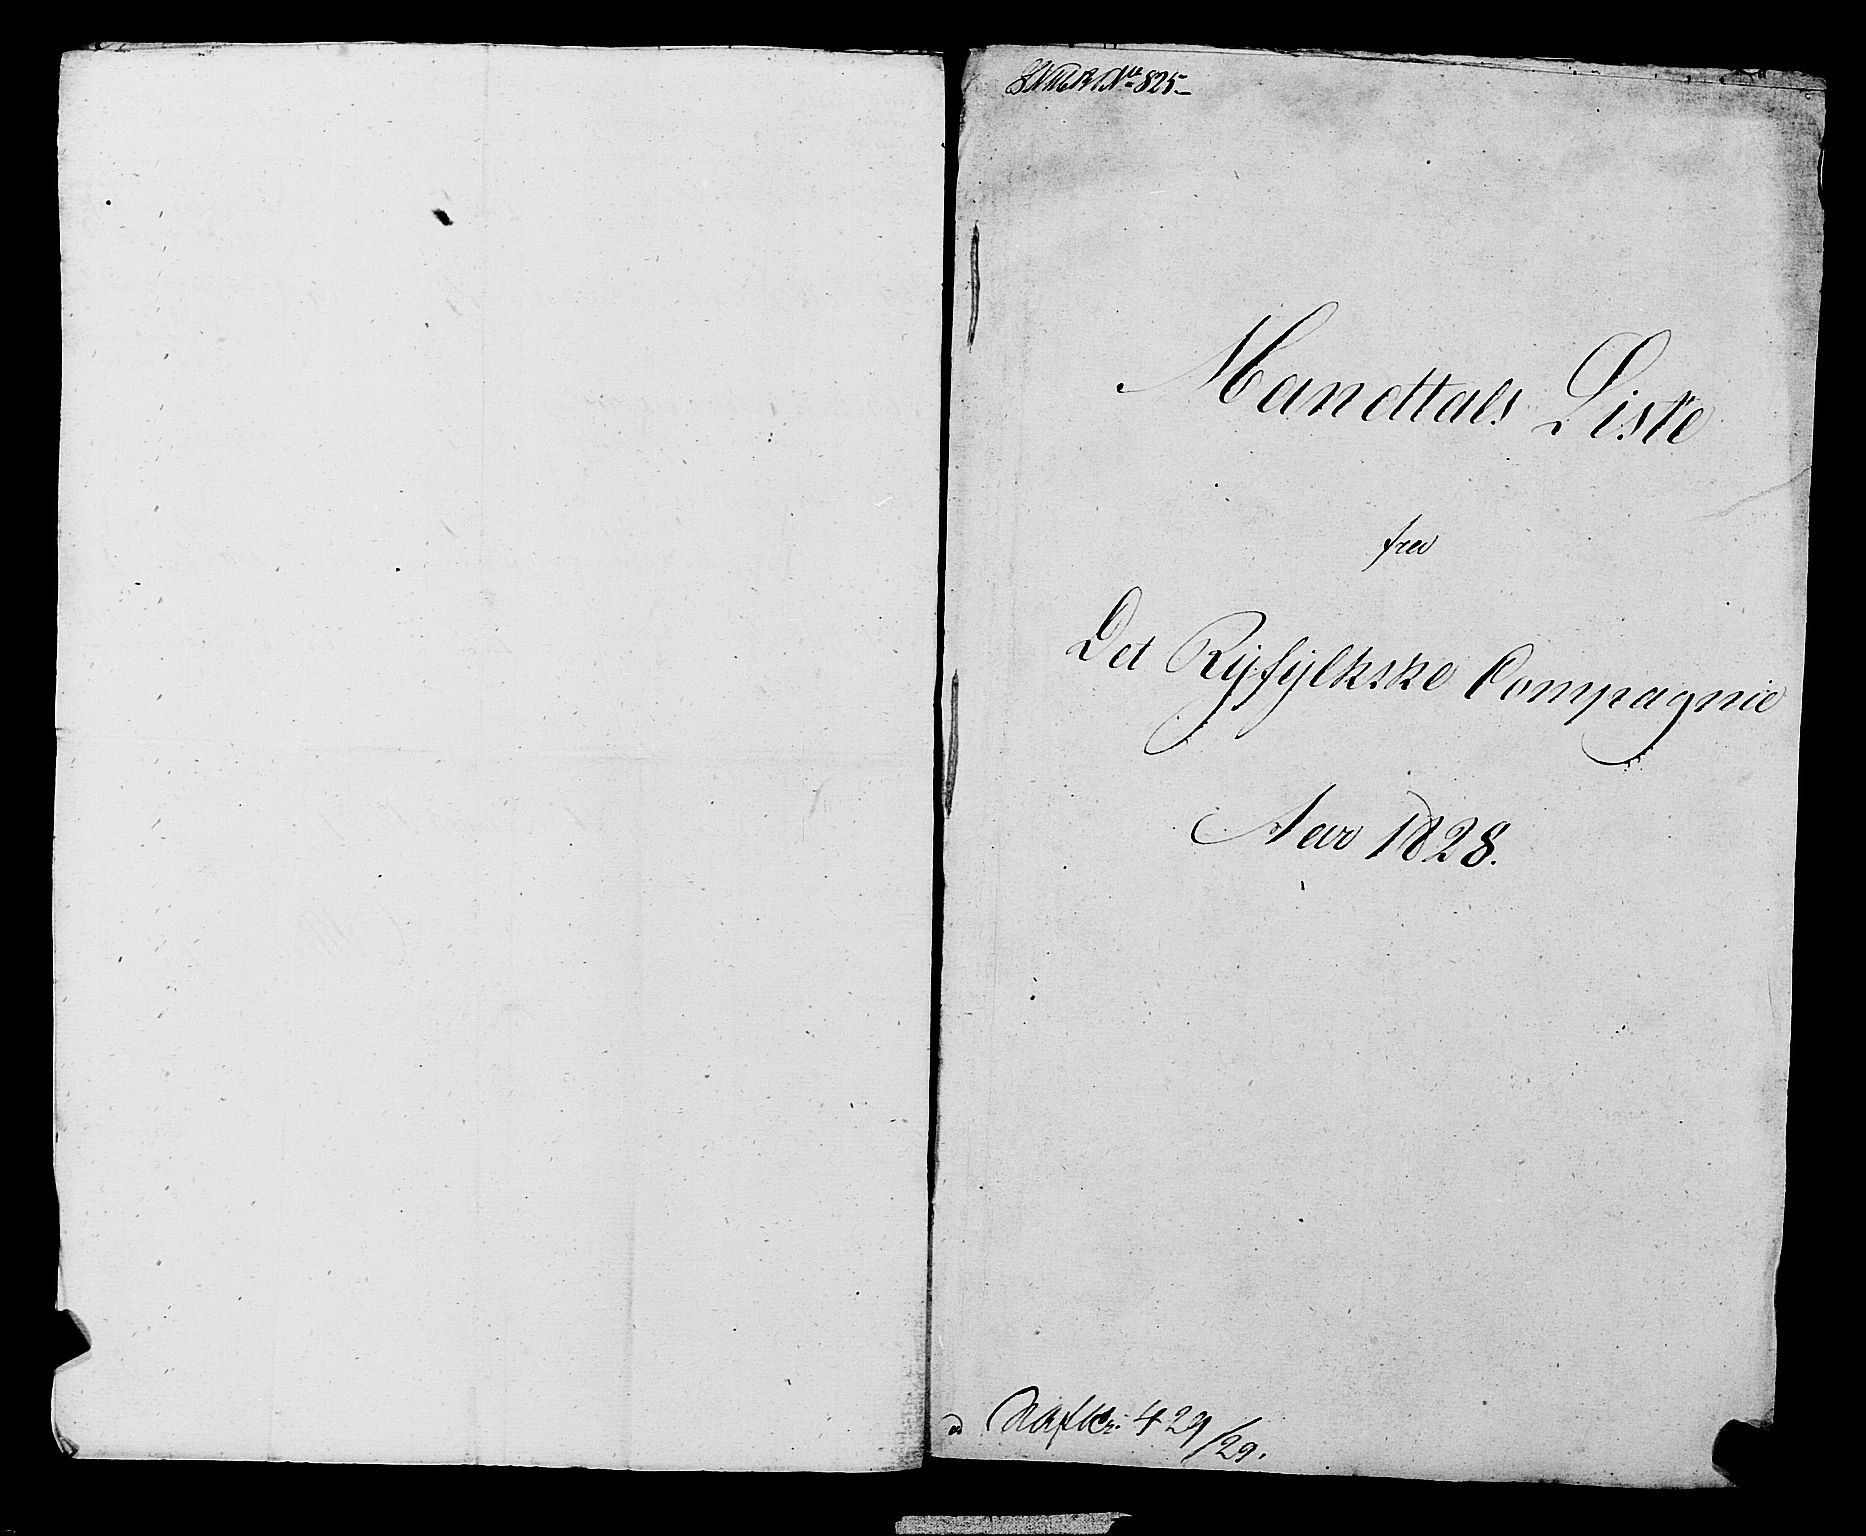 No 825
Mandtals Liste
fra
Det Ryfylkske Compagnie
Aar 1828.
429/29.